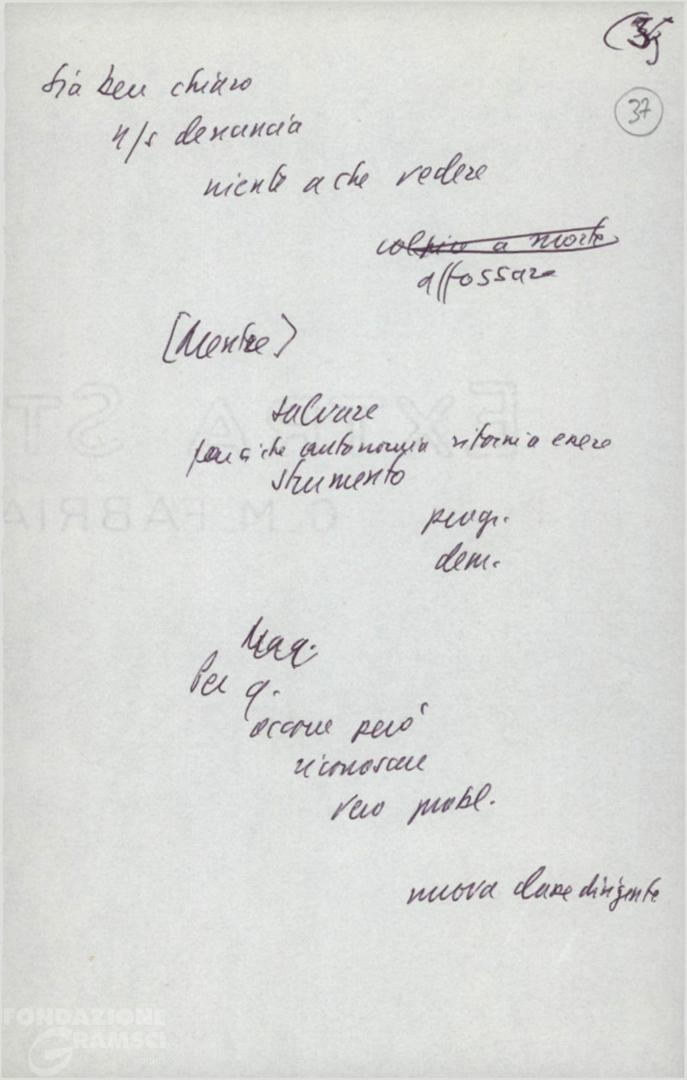 37
Sia ben chiaro
n/s denuncia
niente a che vedere
colpire a morte
affossare
[Mentre]
salvare
autonomia ritorni a essere
strumento
progr.
dem.
Ma q.
Per q.
occorre però
riconoscere
vero probl.
nuova classe dirigente
FONDAZIONE
GRAMSCI